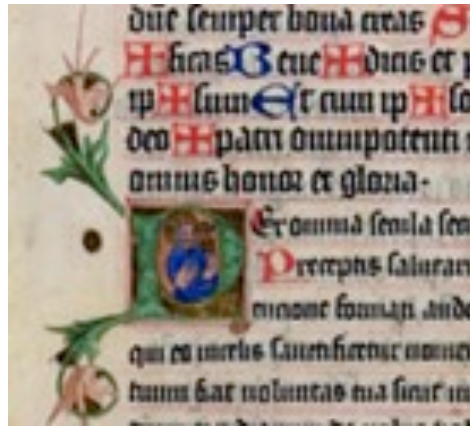 dñe semper bona creas S
✠ficas Bene✠dicis et p
ip✠sum Et cum ip✠s
deo✠patri omnipotenti
omnis honor et gloria.
Per omnia secula sec
Preceptis salutare
formati aude
qui es in celis sanctificetur nomen
tuum fiat voluntas tua sicut in